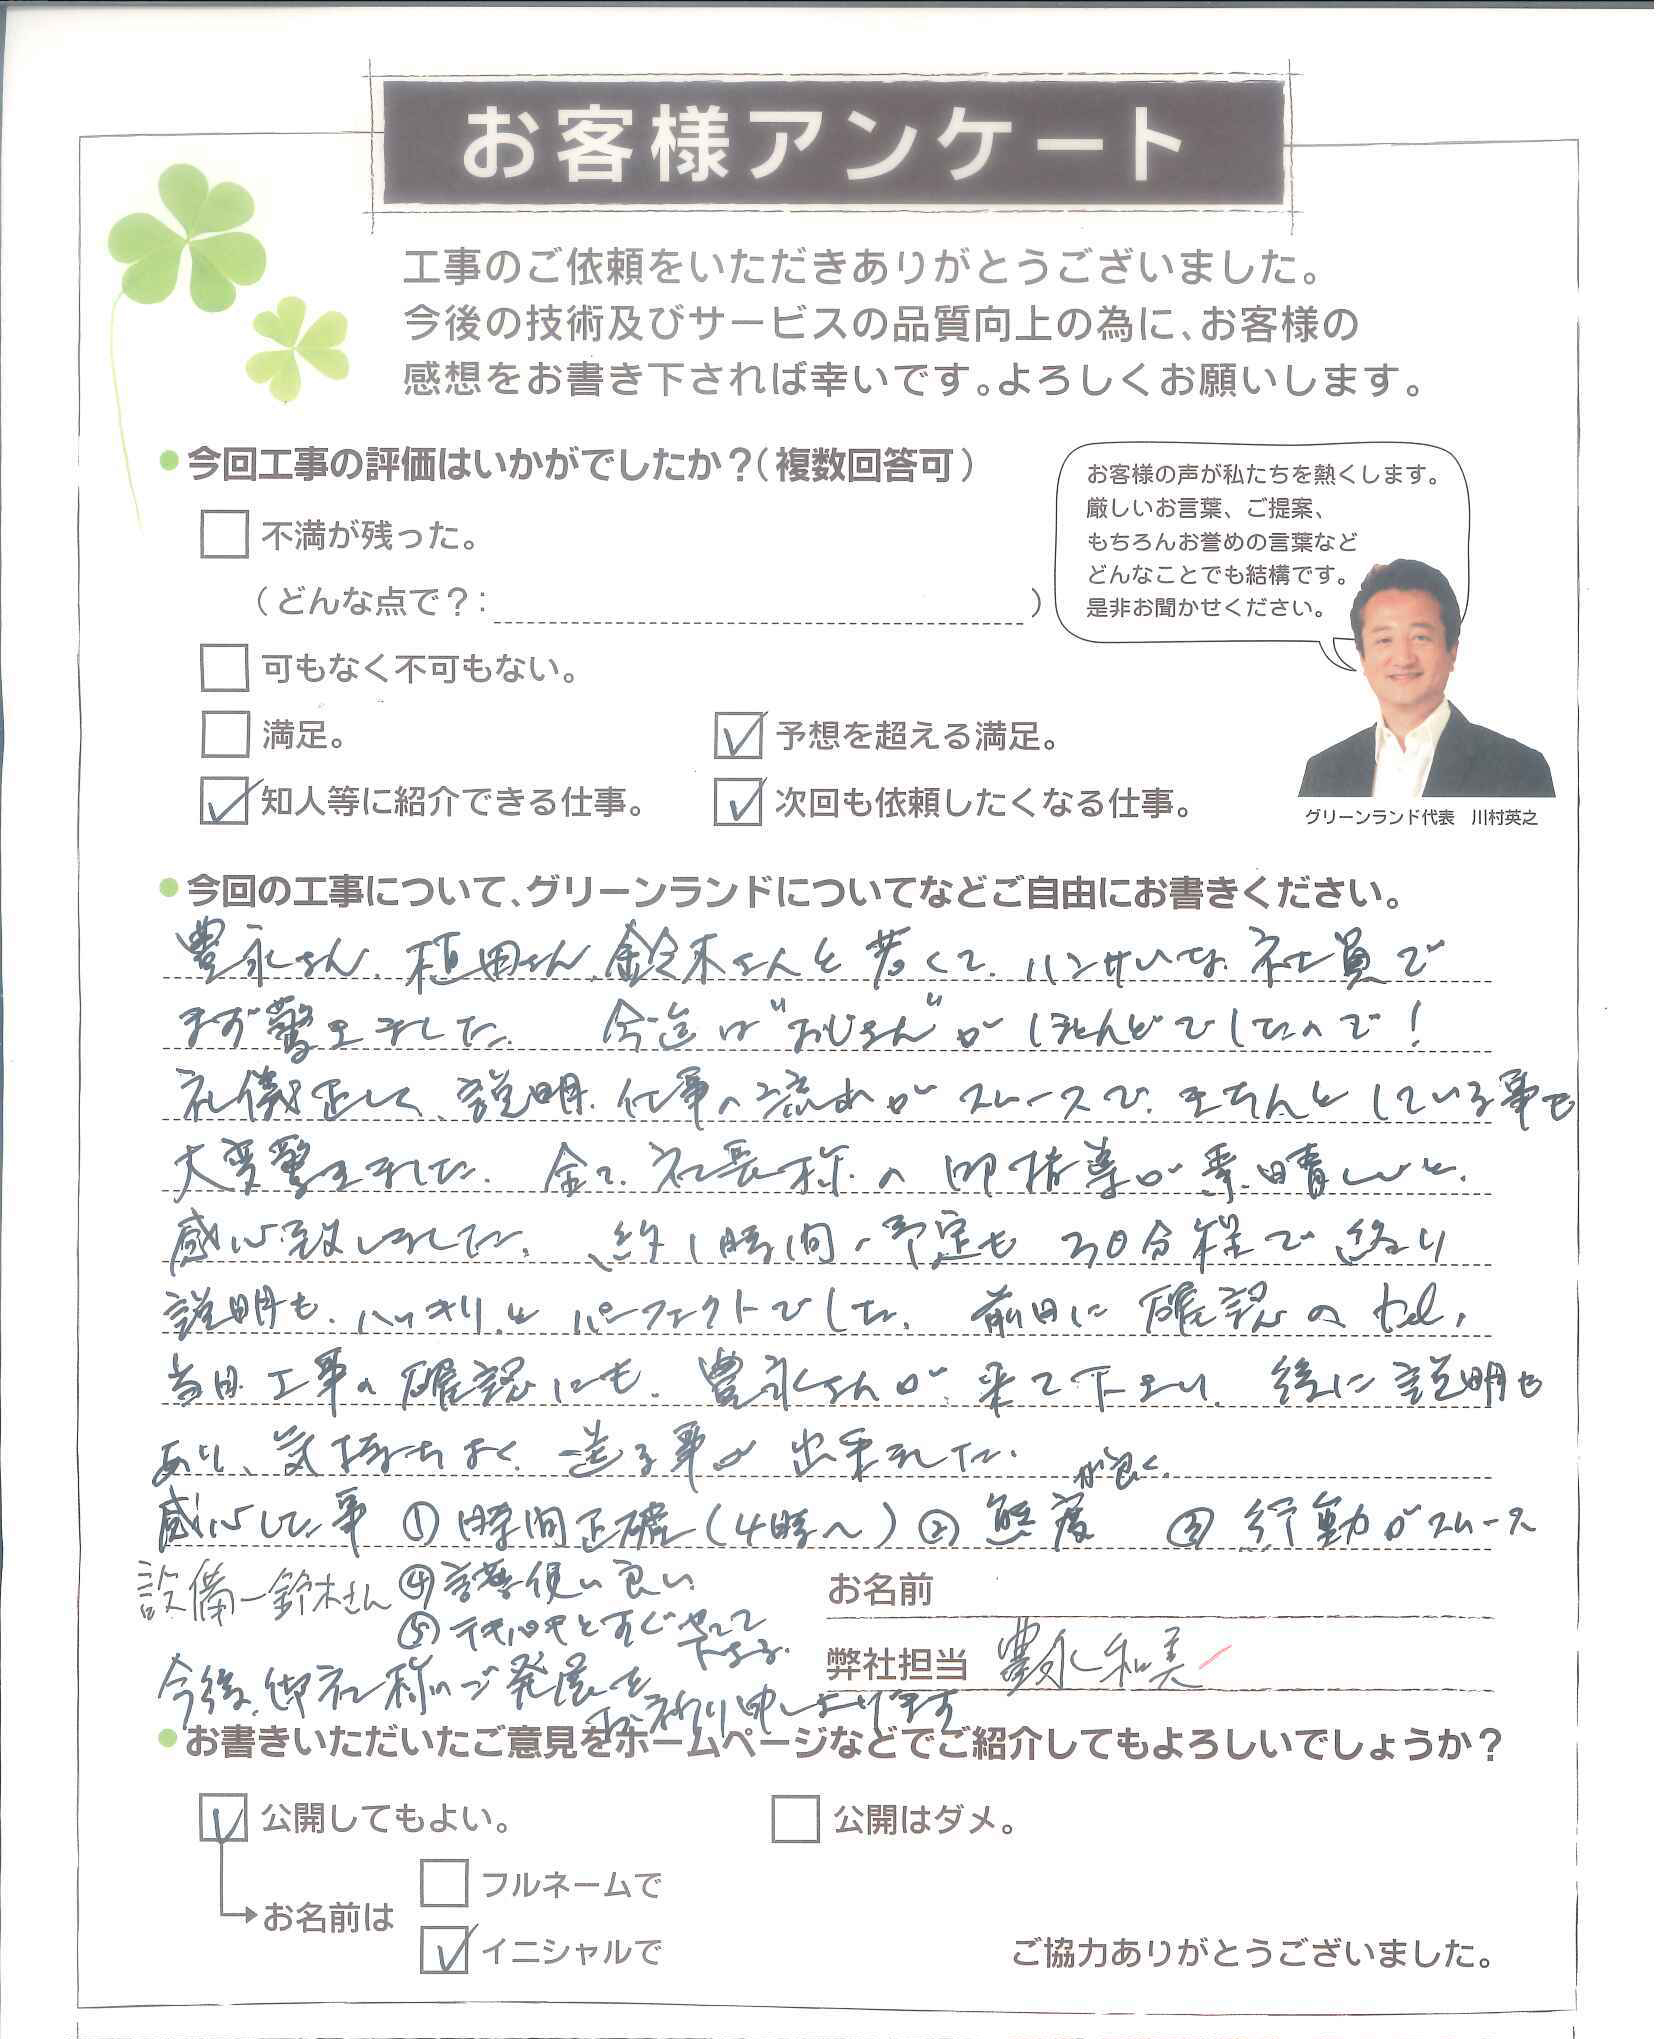 お客様アンケート
工事のご依頼をいただきありがとうございました。
今後の技術及びサービスの品質向上の為に、お客様の
感想をお書き下されば幸いです。よろしくお願いします。
今回工事の評価はいかがでしたか？(複数回答可)
不満が残った。
(どんな点で？: )
可もなく不可もない。
満足。
予想を超える満足。
知人等に紹介できる仕事。
次回も依頼したくなる仕事。
お客様の声が私たちを熱くします。
厳しいお言葉、ご提案、
もちろんお誉めの言葉など
どんなことでも結構です。
是非お聞かせください。
グリーンランド代表 川村英之
今回の工事について、グリーンランドについてなどご自由にお書きください。
豊永さん、植田さん、鈴木さんと若くて、ハンサムな社員で
まず驚きました。 今迄は"おじさん"がほとんどでしたので！
礼儀正しく、説明、仕事の流れがスムースで、きちんとしている事も
大変驚きました。 全て、社長様の御指導が素晴しいと、
感心致しました。 約1時間の予定も30分程で終り
説明も、ハッキリとパーフェクトでした。 前日に確認のtel、
当日工事の確認にも、豊永さんが来て下さり、後に説明も
あり、気持ちよく送る事が出来ました。
感心した事 ①時間正確(4時〜) ②態度が良く、 ③行動がスムース
設備ー鈴木さん ④言葉使い良い
⑤テキパキとすぐやって下さる。
今後、御社様のご発展をお祈り申し上げます
お名前
弊社担当 豊永和美
お書きいただいたご意見をホームページなどでご紹介してもよろしいでしょうか？
公開してもよい。
公開はダメ。
お名前は
フルネームで
イニシャルで
ご協力ありがとうございました。